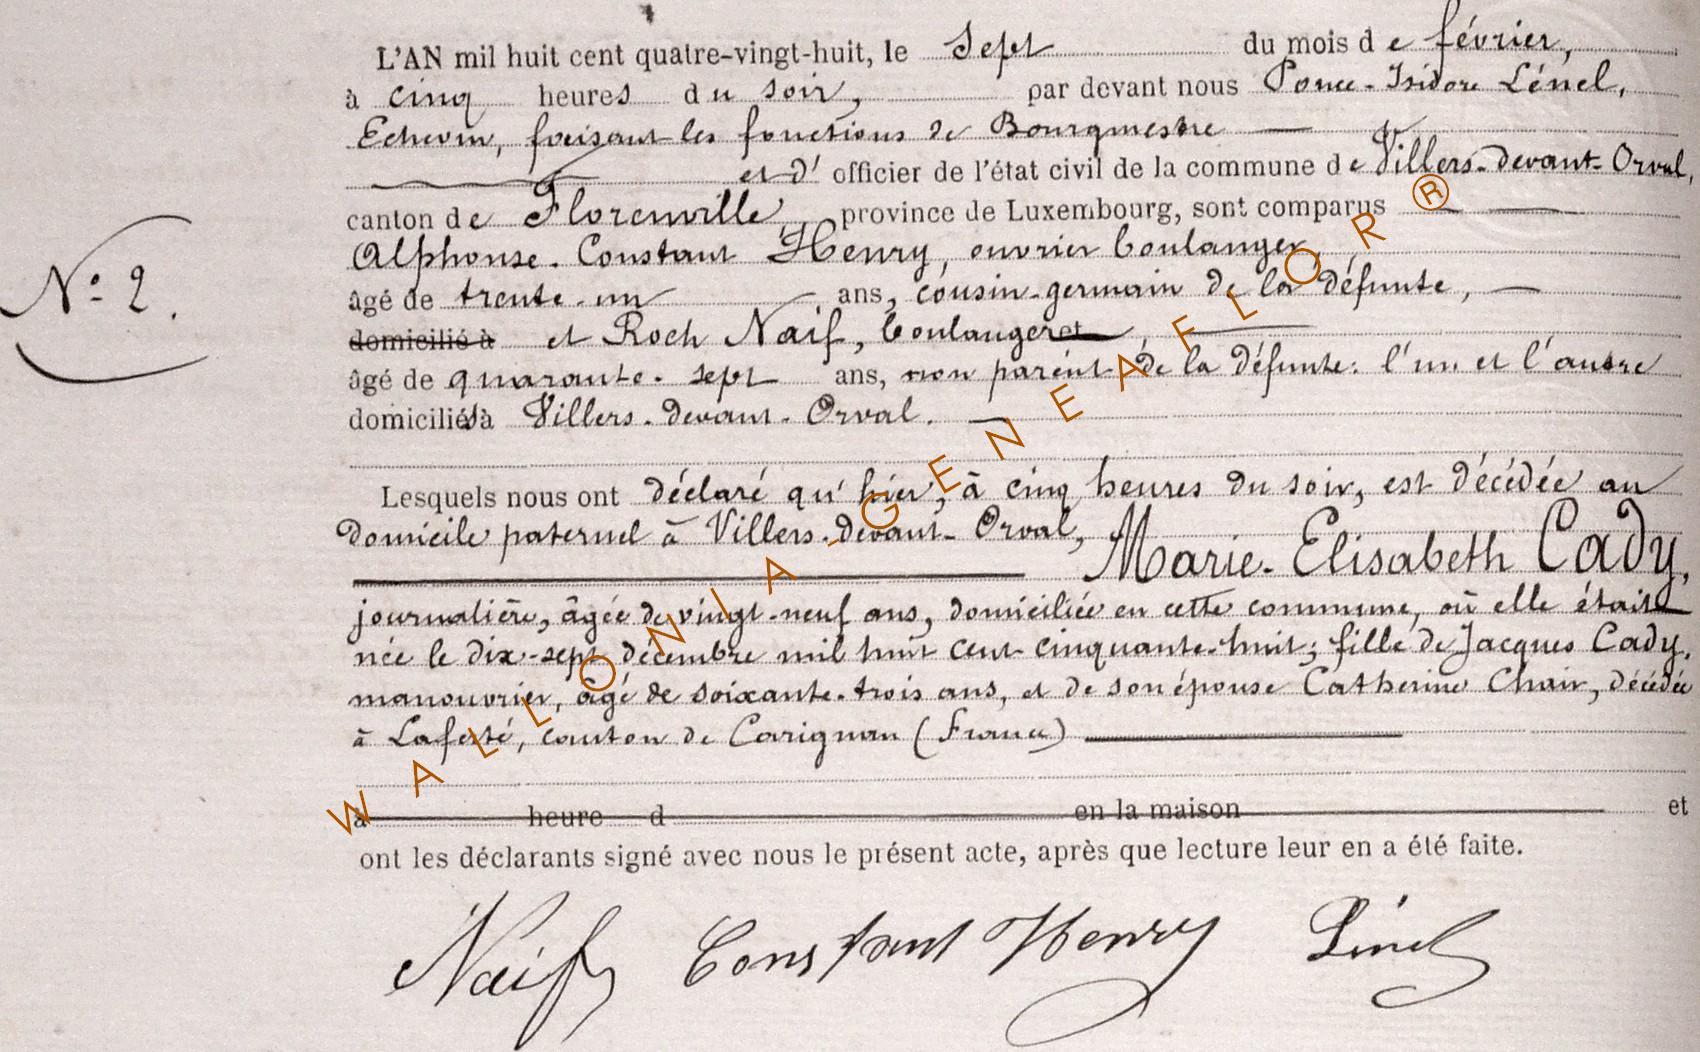 L'AN mil huit cent quatre-vingt-huit, le Sept du mois de février,
à cinq heures du soir, par devant nous Ponce-Isidore Lénel,
Echevin, faisant les fonctions de Bourgmestre
et d' officier de l'état civil de la commune de Villers-devant-Orval,
canton de Florenville, province de Luxembourg, sont comparus
Alphonse-Constant Henry, ouvrier boulanger,
âgé de trente-un ans, cousin-germain de la défunte,
N° 2.
domicilié à et Roch Naif, boulanger et,
âgé de quarante-sept ans, non parent de la défunte: l'un et l'autre
domiciliés à Villers-devant-Orval.
Lesquels nous ont déclaré qu'hier, à cinq heures du soir, est décédée au
domicile paternel à Villers-devant-Orval,
Marie-Elisabeth Cady,
journalière, âgée de vingt-neuf ans, domiciliée en cette commune, où elle était
née le dix-sept décembre mil huit cent cinquante-huit; fille de Jacques Cady,
manouvrier, âgé de soixante-trois ans, et de son épouse Catherine Chair, décédée
à Laferté, canton de Carignan (France)
à heure d en la maison et
ont les déclarants signé avec nous le présent acte, après que lecture leur en a été faite.
Naif Constant Henry Lénel
WALLONIA-GENEAFLOR®